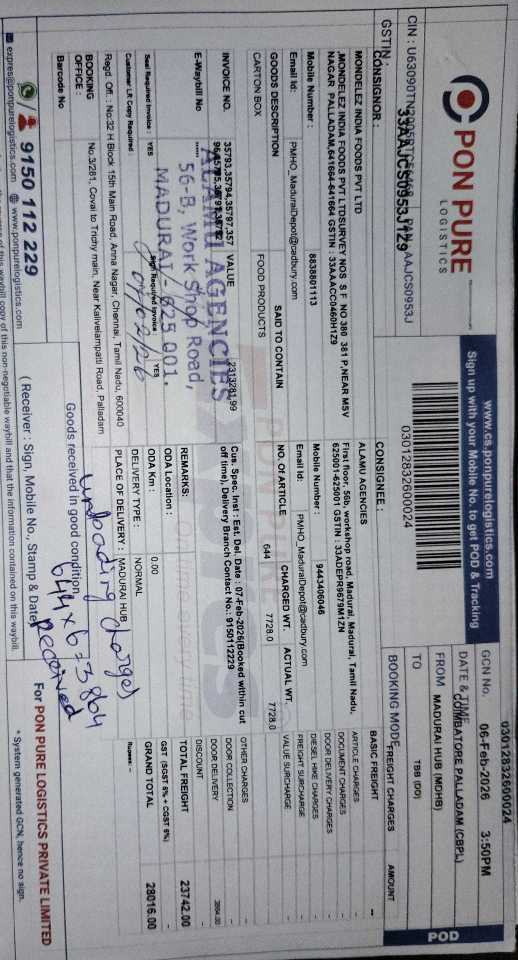 PON PURE
LOGISTICS
www.cs.ponpurelogistics.com
Sign up with your Mobile No. to get POD & Tracking
POD
GSTIN :
33AAJCS0953J1Z9
03012832600024
GCN No. 03012832600024
DATE & TIME 06-Feb-2026 3:50PM
FROM COIMBATORE PALLADAM (CBPL)
TO MADURAI HUB (MDHB)
BOOKING MODE TBB (DD)
CONSIGNOR :
MONDELEZ INDIA FOODS PVT LTD
,MONDELEZ INDIA FOODS PVT LTDSURVEY NOS S F NO 380 381 P,NEAR MSV
NAGAR PALLADAM,641664-641664 GSTIN : 33AAACC0460H1Z9
Mobile Number : 8838801113
Email Id: PMHO_MaduraiDepot@cadbury.com
CONSIGNEE :
ALAMU AGENCIES
First floor, 56b, workshop road, Madurai, Madurai, Tamil Nadu,
625001-625001 GSTIN : 33ADEPR9679M1ZN
Mobile Number : 9443406046
Email Id: PMHO_MaduraiDepot@cadbury.com
GOODS DESCRIPTION SAID TO CONTAIN NO. OF ARTICLE CHARGED WT. ACTUAL WT.
CARTON BOX FOOD PRODUCTS 644 7728.0 7728.0
INVOICE NO. 35793,35794,35797,357
VALUE 2313281.99
E-Waybill No
Seal Required Invoice : YES
Sign Required Invoice YES
Customer LR Copy Required
ALAMU AGENCIES
56-B, Work Shop Road,
MADURAI - 625 001.
07/02/26
Cus. Spec. Inst : Est. Del. Date : 07-Feb-2026(Booked within cut
off time), Delivery Branch Contact No.: 9150112229
REMARKS:
ODA Location :
ODA Km : 0.00
DELIVERY TYPE : NORMAL
PLACE OF DELIVERY : MADURAI HUB
FREIGHT CHARGES AMOUNT
BASIC FREIGHT --
ARTICLE CHARGES -
DOCUMENT CHARGES -
DOOR DELIVERY CHARGES -
DIESEL HIKE CHARGES -
FREIGHT SURCHARGE -
VALUE SURCHARGE -
OTHER CHARGES -
DOOR COLLECTION -
DOOR DELIVERY 3864.00
DISCOUNT -
TOTAL FREIGHT 23742.00
GST (SGST 9% + CGST 9%) -
GRAND TOTAL 28016.00
Rupees: --
Regd. Off. : No:32 H Block 15th Main Road, Anna Nagar, Chennai, Tamil Nadu, 600040
BOOKING OFFICE : No.3/281, Covai to Trichy main, Near Kalivelampatti Road, Palladam
Barcode No
Goods received in good condition
unloading charges
644 x 6 = 3864
Received
9150 112 229
expres@ponpurelogistics.com www.ponpurelogistics.com
( Receiver : Sign, Mobile No., Stamp & Date )
For PON PURE LOGISTICS PRIVATE LIMITED
* System generated GCN, hence no sign.
waybill copy of this non-negotiable waybill and that the information contained on this waybill.